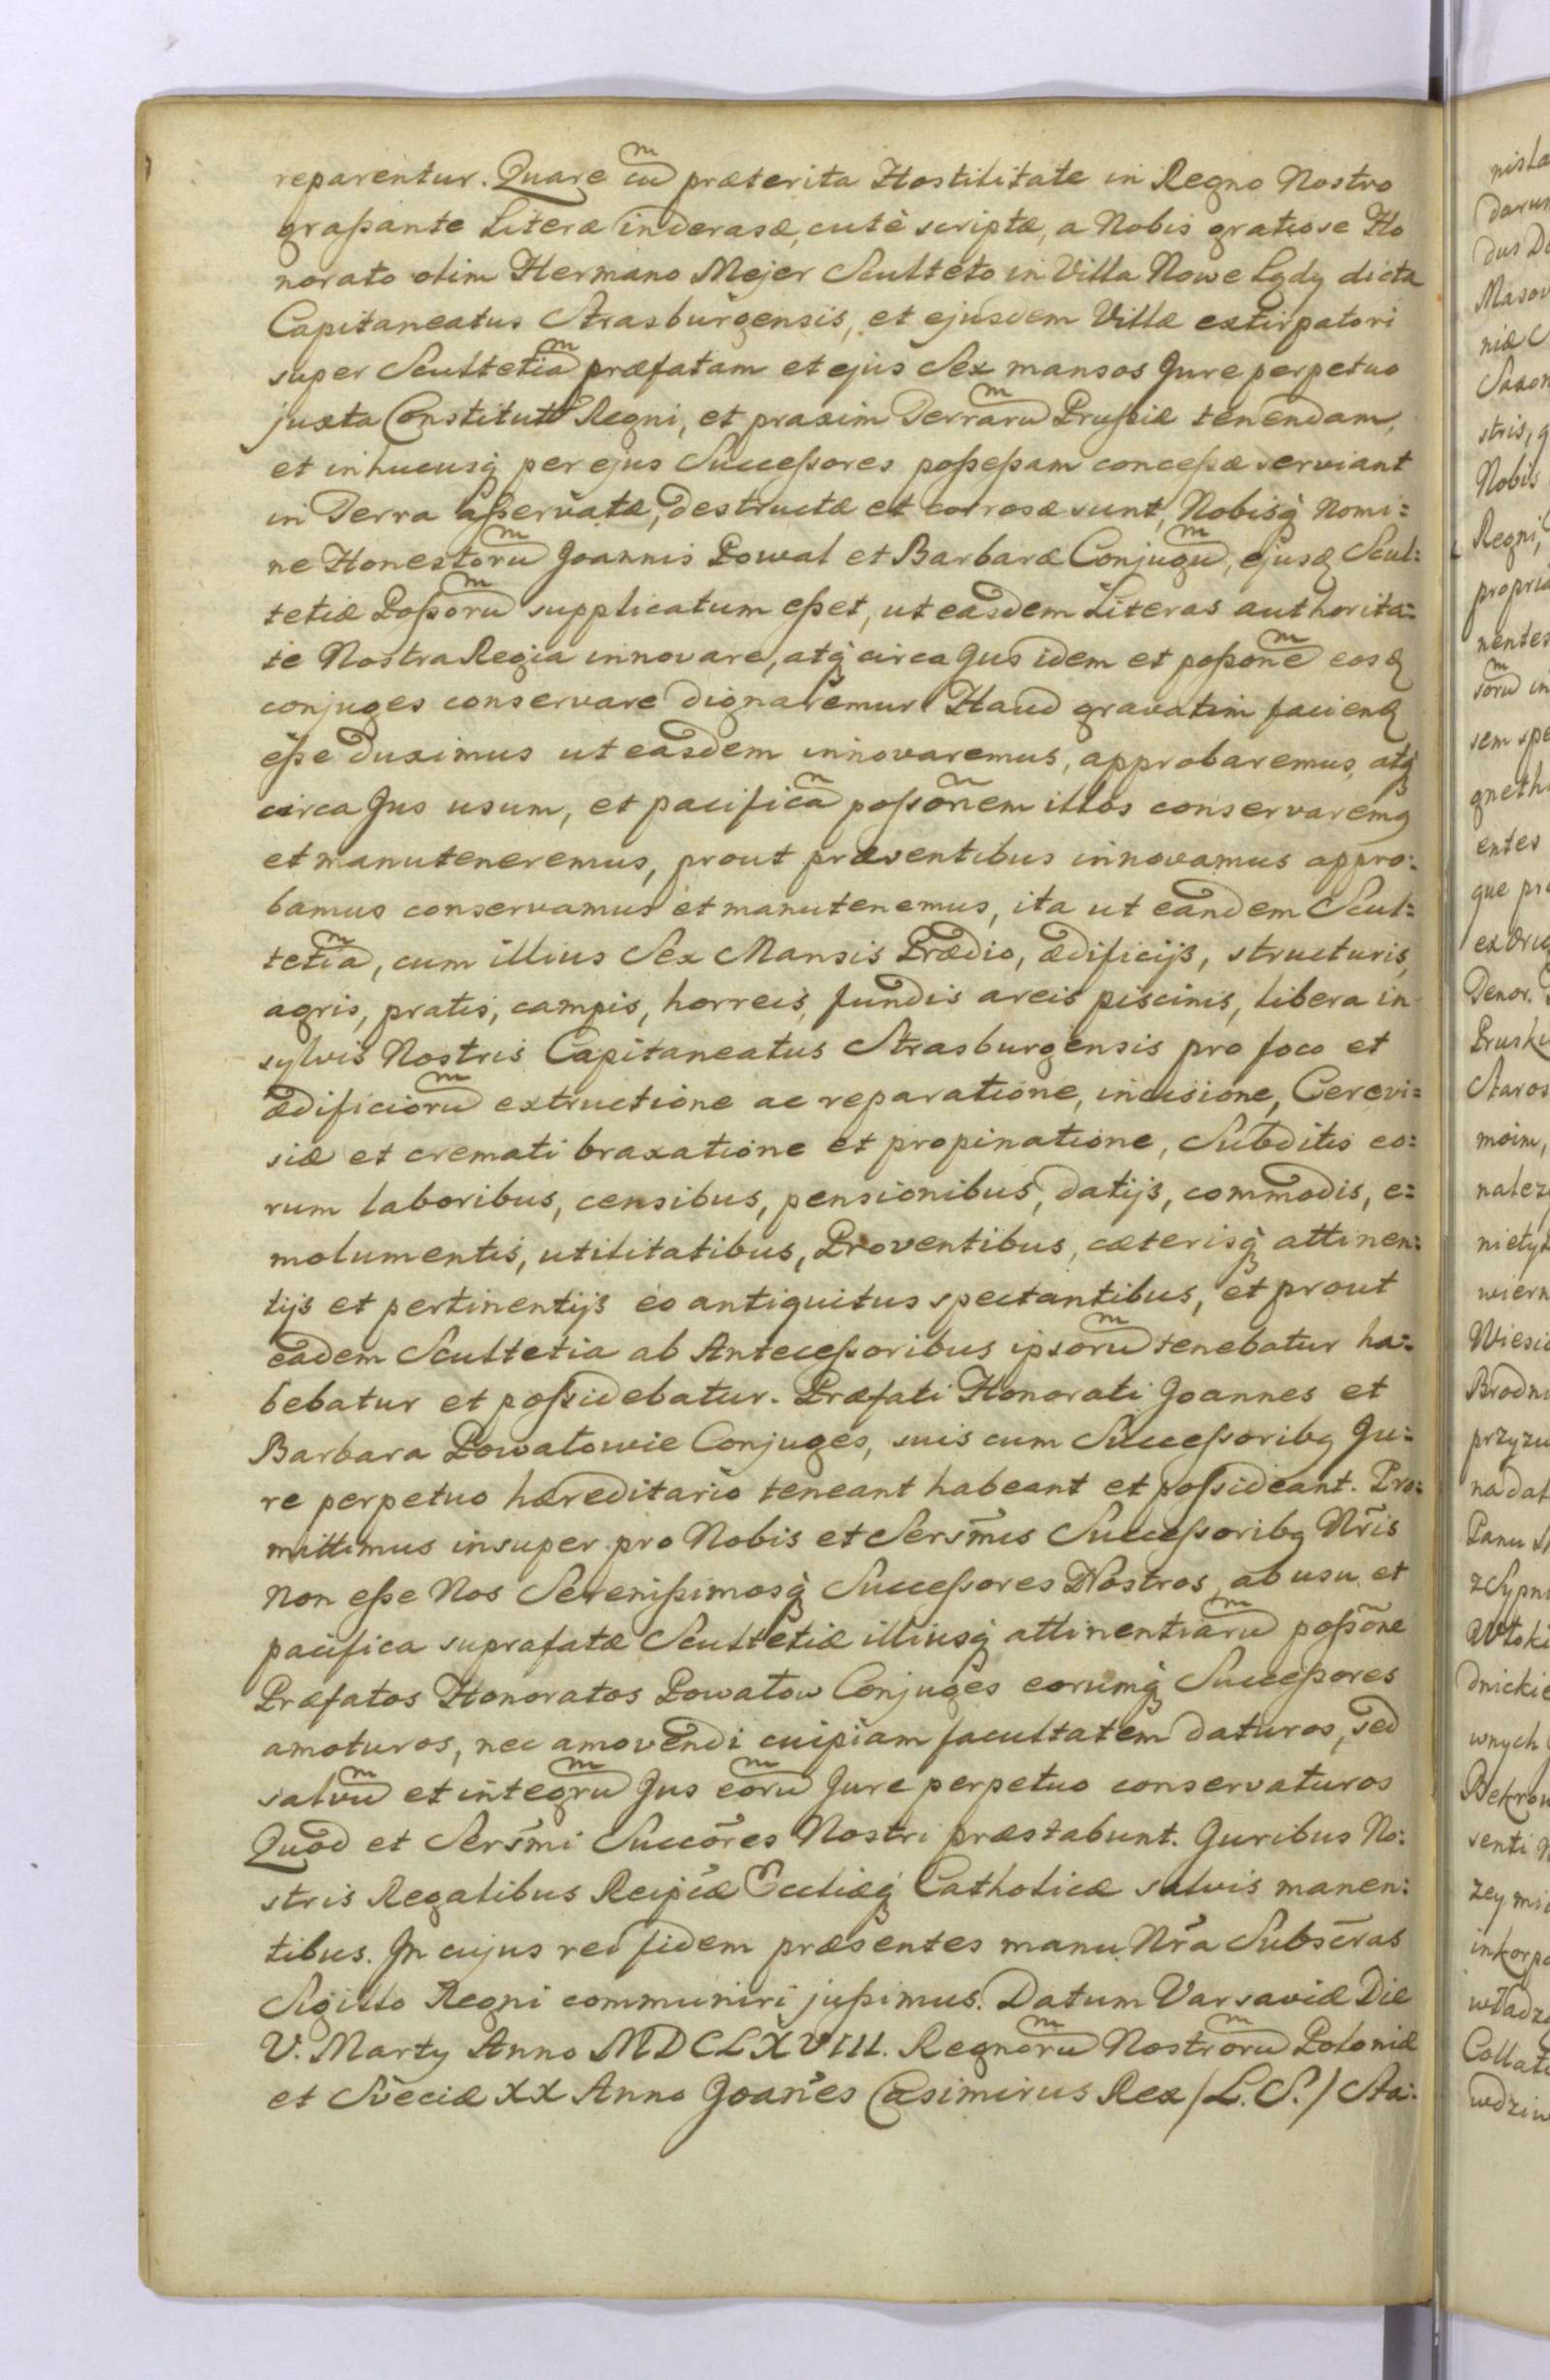 reparentur. Quare cu^m præterita Hostilitate in Regno Nostro
graßante Literæ in derasæ, cutè scriptæ, a Nobis gratiose Ho
norato olim Hermano Mejer Sculteto in Villa Nowe Lądy dicta
Capitaneatus Strasburgensis, et ejusdem Villæ extirpatori
super Scultetia^m præfatam et ejus Sex mansos Jure perpetuo
juxta Constitut Regni, et praxim Terraru^m Prußiæ tenendam,
et in hucusq̃ per ejus Succeßores poßeßam conceßæ serviant
in Terra aßervatæ, destructæ et corrosæ sunt, Nobisq̃ Nomi:
ne Honestoru^m Joannis Powal et Barbaræ Conjugu^m, ejusq Scul:
tetiæ Poßoru^m supplicatum eßet, ut easdem Literas authorita:
te Nostra Regia innovare, atq̃ circa Jus idem et poßone^m eosq
conjuges conservare dignaremur Haud gravatim faciend
eße duximus ut easdem innovaremus, approbaremus, atq̃
circa Jus usum, et pacificã poßõnem illos conservaremq
et manuteneremus, prout præsentibus innovamus appro:
bamus conservamus et manutenemus, ita ut eandem Scul:
tetia^m, cum illius Sex Mansis Prædio, ædificijs, structuris,
agris, pratis, campis, horreis, fundis areis piscinis, libera in
sylvis Nostris Capitaneatus Strasburgensis pro foco et
ædificioru^m extructione ac reparatione, incisione, Cerevi:
siæ et cremati braxatione et propinatione, Subditis eo:
rum laboribus, censibus, pensionibus, datijs, commodis, e:
molumentis, utilitatibus, Proventibus, cæterisq̃ attinen:
tijs et pertinentijs eo antiquitus spectantibus, et prout
eadem Scultetia ab Anteceßoribus ipsoru^m tenebatur ha:
bebatur et poßidebatur. Præfati Honorati Joannes et
Barbara Powalowie Conjuges, suis cum Succeßoribq Ju:
re perpetuo hæreditario teneant habeant et poßideant. Pro:
mittimus insuper pro Nobis et Sersm̃is Succeßoribq Nr̃is
non eße Nos Serenißimosq̃ Succeßores Nostros, ab usu et
pacifica suprafatæ Scultetiæ illiusq̃ attinentiaru^m poßõne
Præfatos Honoratos Powalow Conjuges eorumq̃ Succeßores
amoturos, nec amovendi cuipiam facultatem daturos, sed
salvu^m et integru^m Jus eoru^m Jure perpetuo conservaturos
Quod et Sersm̃i Succõres Nostri præstabunt. Juribus No:
stris Regalibus Reipcæ Eccliæq̃ Catholicæ salvis manen:
tibus. In cujus rei fidem præsentes manu Nr̃a Subscr̃as
Sigillo Regni communiri jußimus. Datum Varsaviæ Die
V. Marty Anno MDCLXVIII. Regnoru^m Nostroru^m Poloniæ
et Sveciæ XX Anno Joañes Casimirus Rex /L.S./ Sta:
Masov
Saxon
stris, q
Nobis
Regni,
propria
nentes
sem spe
entes
que pr
Denor.
Prusk
Staros
moim,
nalez
wiern
Wiesi
Brodn
przyzn
nadat
Panu
dnickie
wnych
senti
władz
Collat